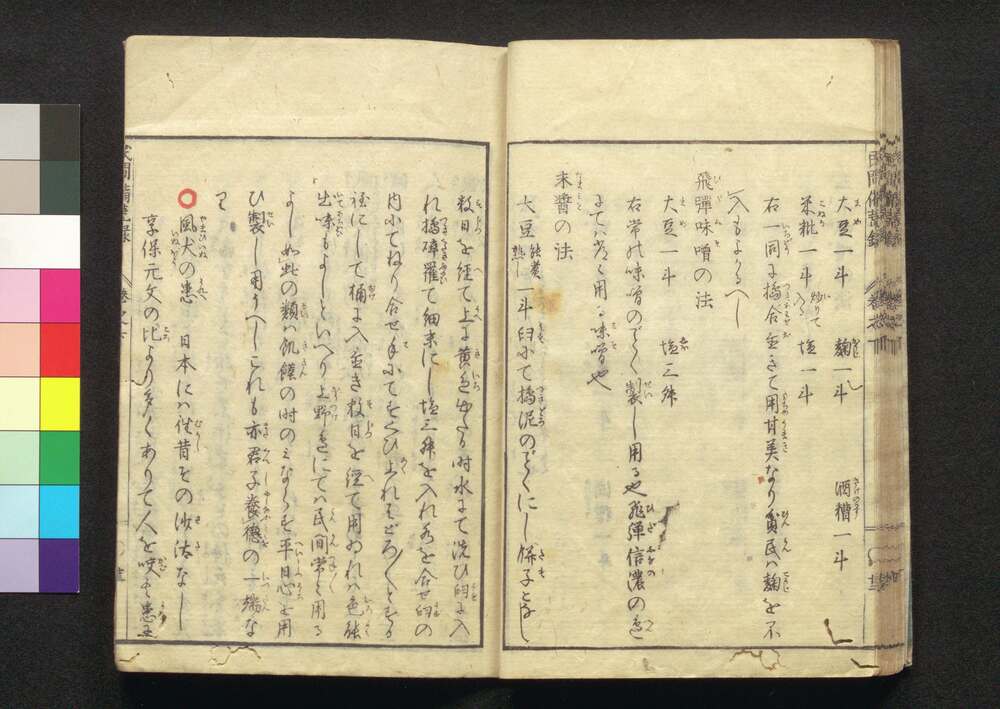 大豆一斗 麹一斗 酒糟一斗
米粃一斗 炒りて入る 塩一斗
右一同に搗合せ置きて用甘美なり貧民ハ麹を不
入もよかるへし
飛彈味噌の法
大豆一斗 塩三升
右常の味噌のごとく製し用る也飛彈信濃の邊
にてハ常に用る味噌也
末醤の法
大豆 能煮熟し 一斗臼にて搗泥のごとくにし餅子となし
数日を經て上に黄色出たる時水にて洗ひ日に入
れ搗碎羅て細末にし塩三升を入れ水を合せ臼の
内にてねり合せ手にてすくひ上れハどろ／＼とする
程にして桶に入置き数日を經て用れハ色能
出味もよしといへり上野邊にてハ民間常に用る
よし如此の類ハ飢饉の時のミならす平日心を用
ひ製し用うへしこれも亦君子養徳の一端な
り
風犬の患 日本にハ往昔その沙汰なし
享保元文の比より多くありて人を咬も患至